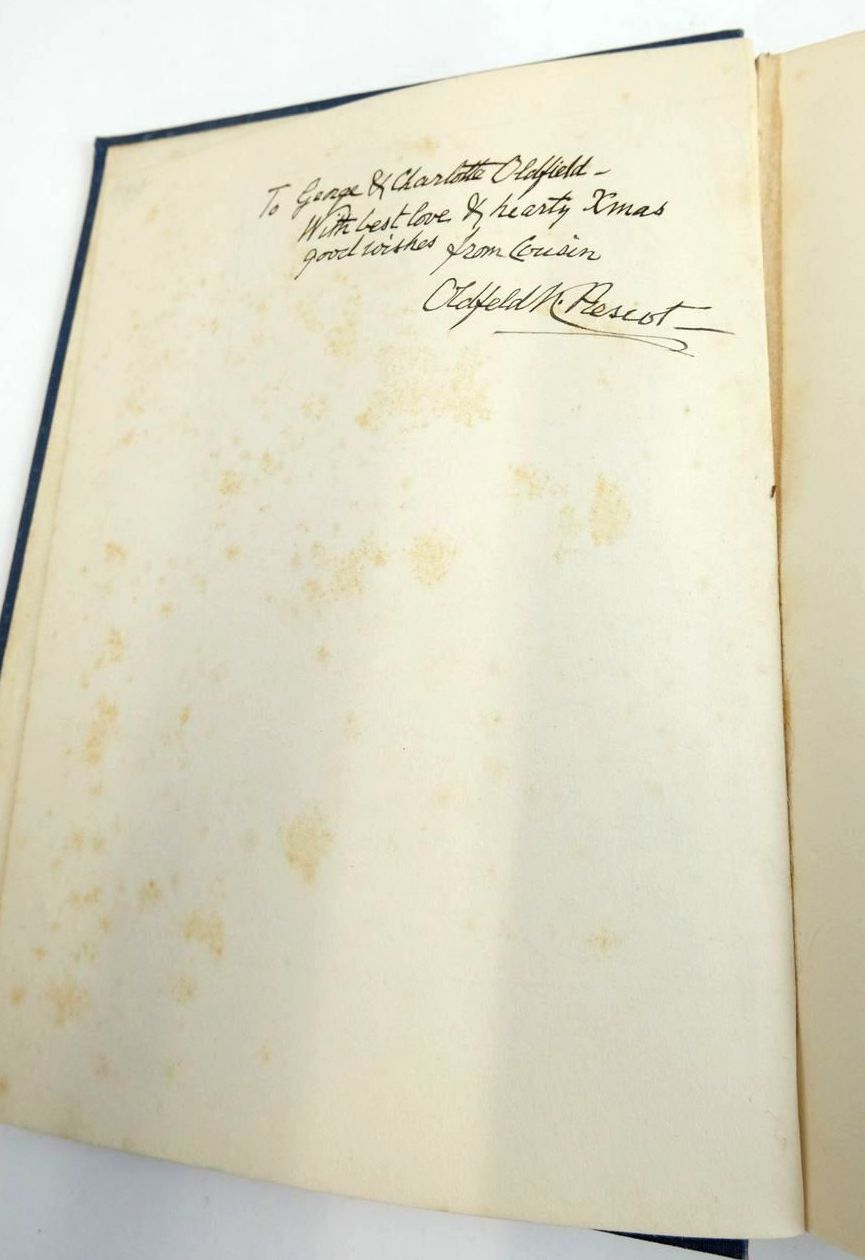 To George & Charlotte Oldfield -
With best love & hearty Xmas
good wishes from Cousin
Oldfeld K. Prescot